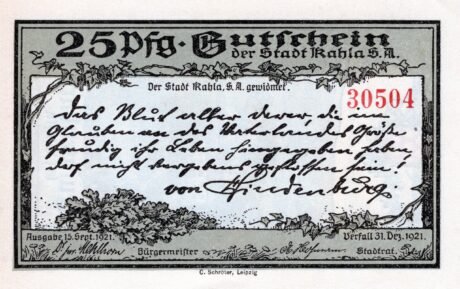 25 Pfg. Gutschein
der Stadt Kahla S.A.
Der Stadt Kahla, S.A. gewidmet.
30504
Das Blut aller derer, die im
Glauben an des Vaterlandes Größe
freudig ihr Leben hingegeben haben,
darf nicht vergebens geflossen sein!
von Hindenburg.
Ausgabe 15. Sept. 1921.
Verfall 31. Dez. 1921.
Bürgermeister
Stadtrat.
C. Schröter, Leipzig